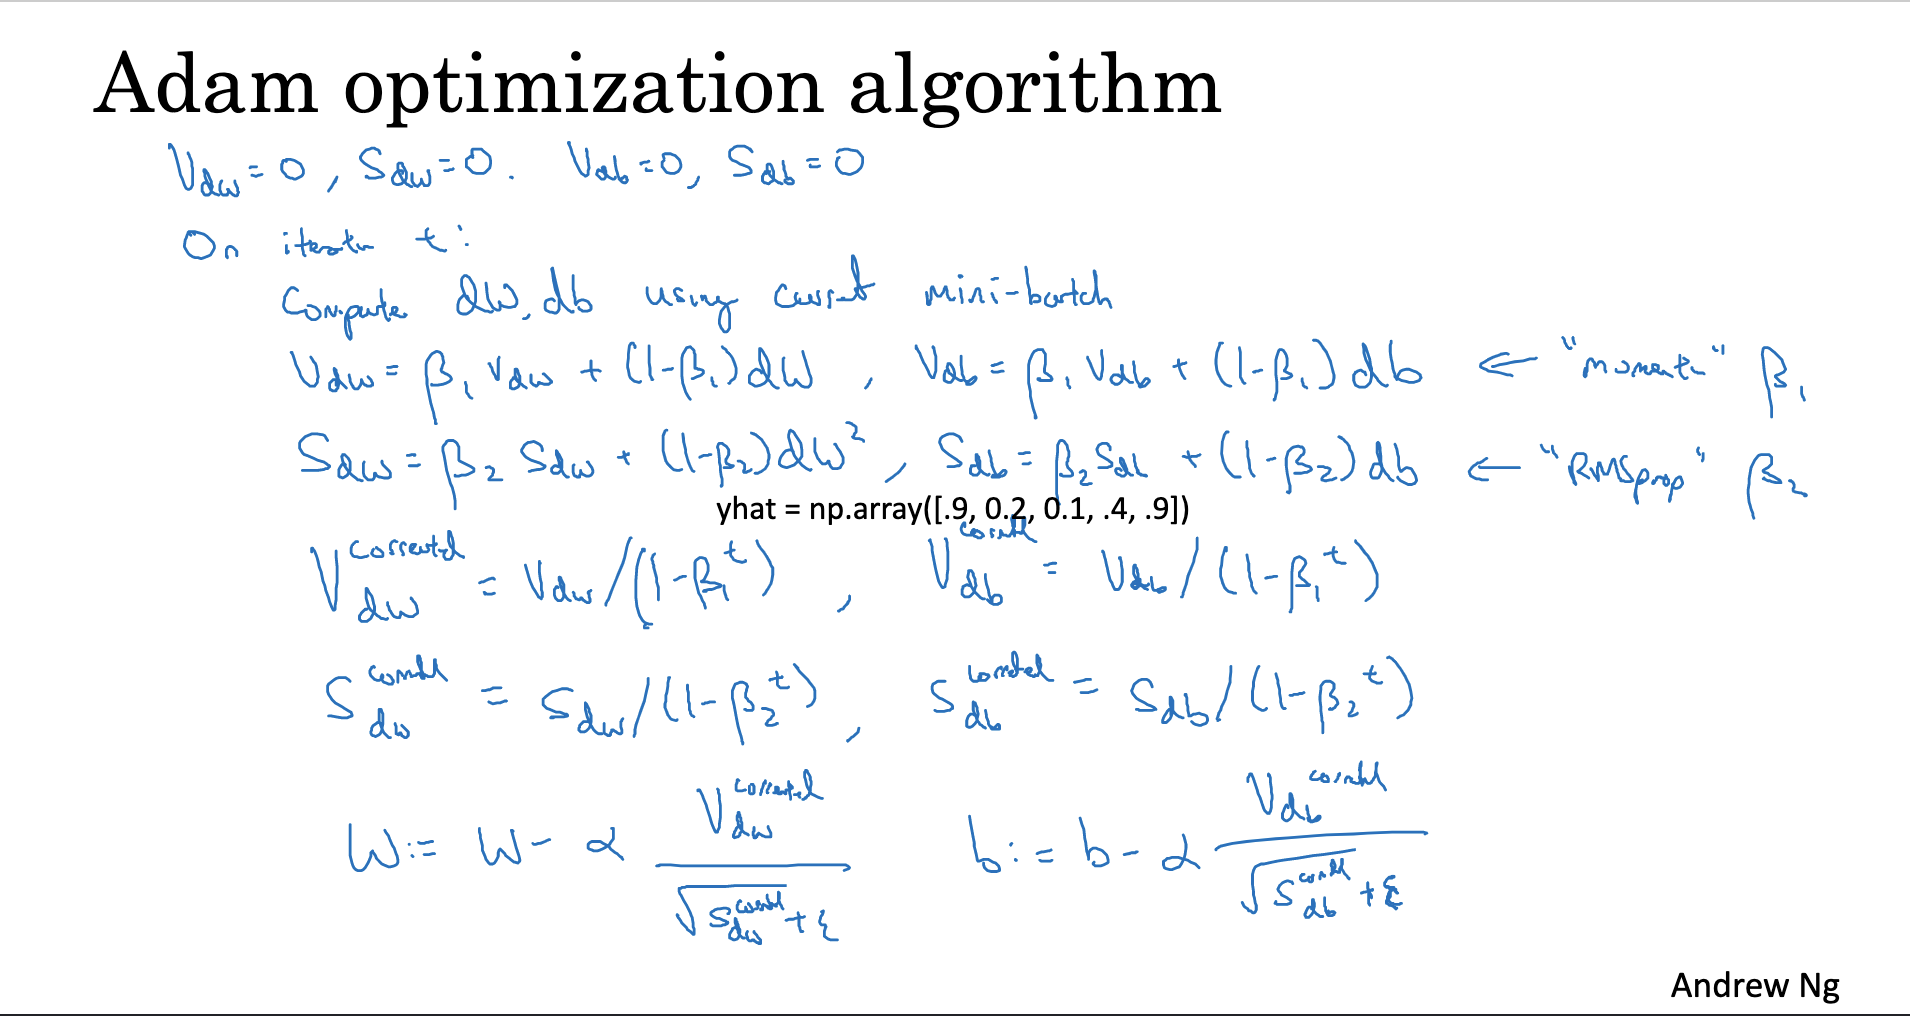 Adam optimization algorithm
V_dw = 0, S_dw = 0. V_db = 0, S_db = 0
On iteration t:
Compute dW, db using current mini-batch
V_dw = β₁ V_dw + (1-β₁) dW, V_db = β₁ V_db + (1-β₁) db ← "momentum" β₁
S_dw = β₂ S_dw + (1-β₂) dW², S_db = β₂ S_db + (1-β₂) db ← "RMSprop" β₂
yhat = np.array([.9, 0.2, 0.1, .4, .9])
V_dw^corrected = V_dw / (1-β₁^t), V_db^corrected = V_db / (1-β₁^t)
S_dw^corrected = S_dw / (1-β₂^t), S_db^corrected = S_db / (1-β₂^t)
W := W - α V_dw^corrected / (√S_dw^corrected + ε) b := b - α V_db^corrected / (√S_db^corrected + ε)
Andrew Ng